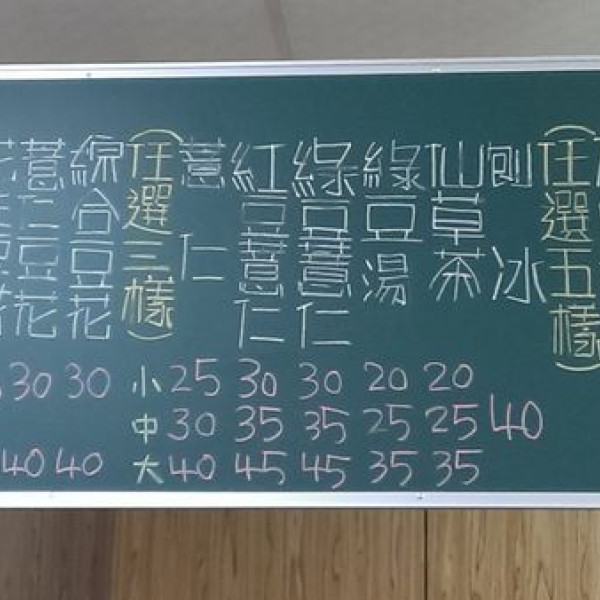 (任選五樣)
刨冰
仙草茶
綠豆湯
綠豆薏仁
紅豆薏仁
薏仁
(任選三樣)
綜合豆花
薏仁豆花
30 30 小 25 30 30 20 20
中 30 35 35 25 25 40
40 40 大 40 45 45 35 35